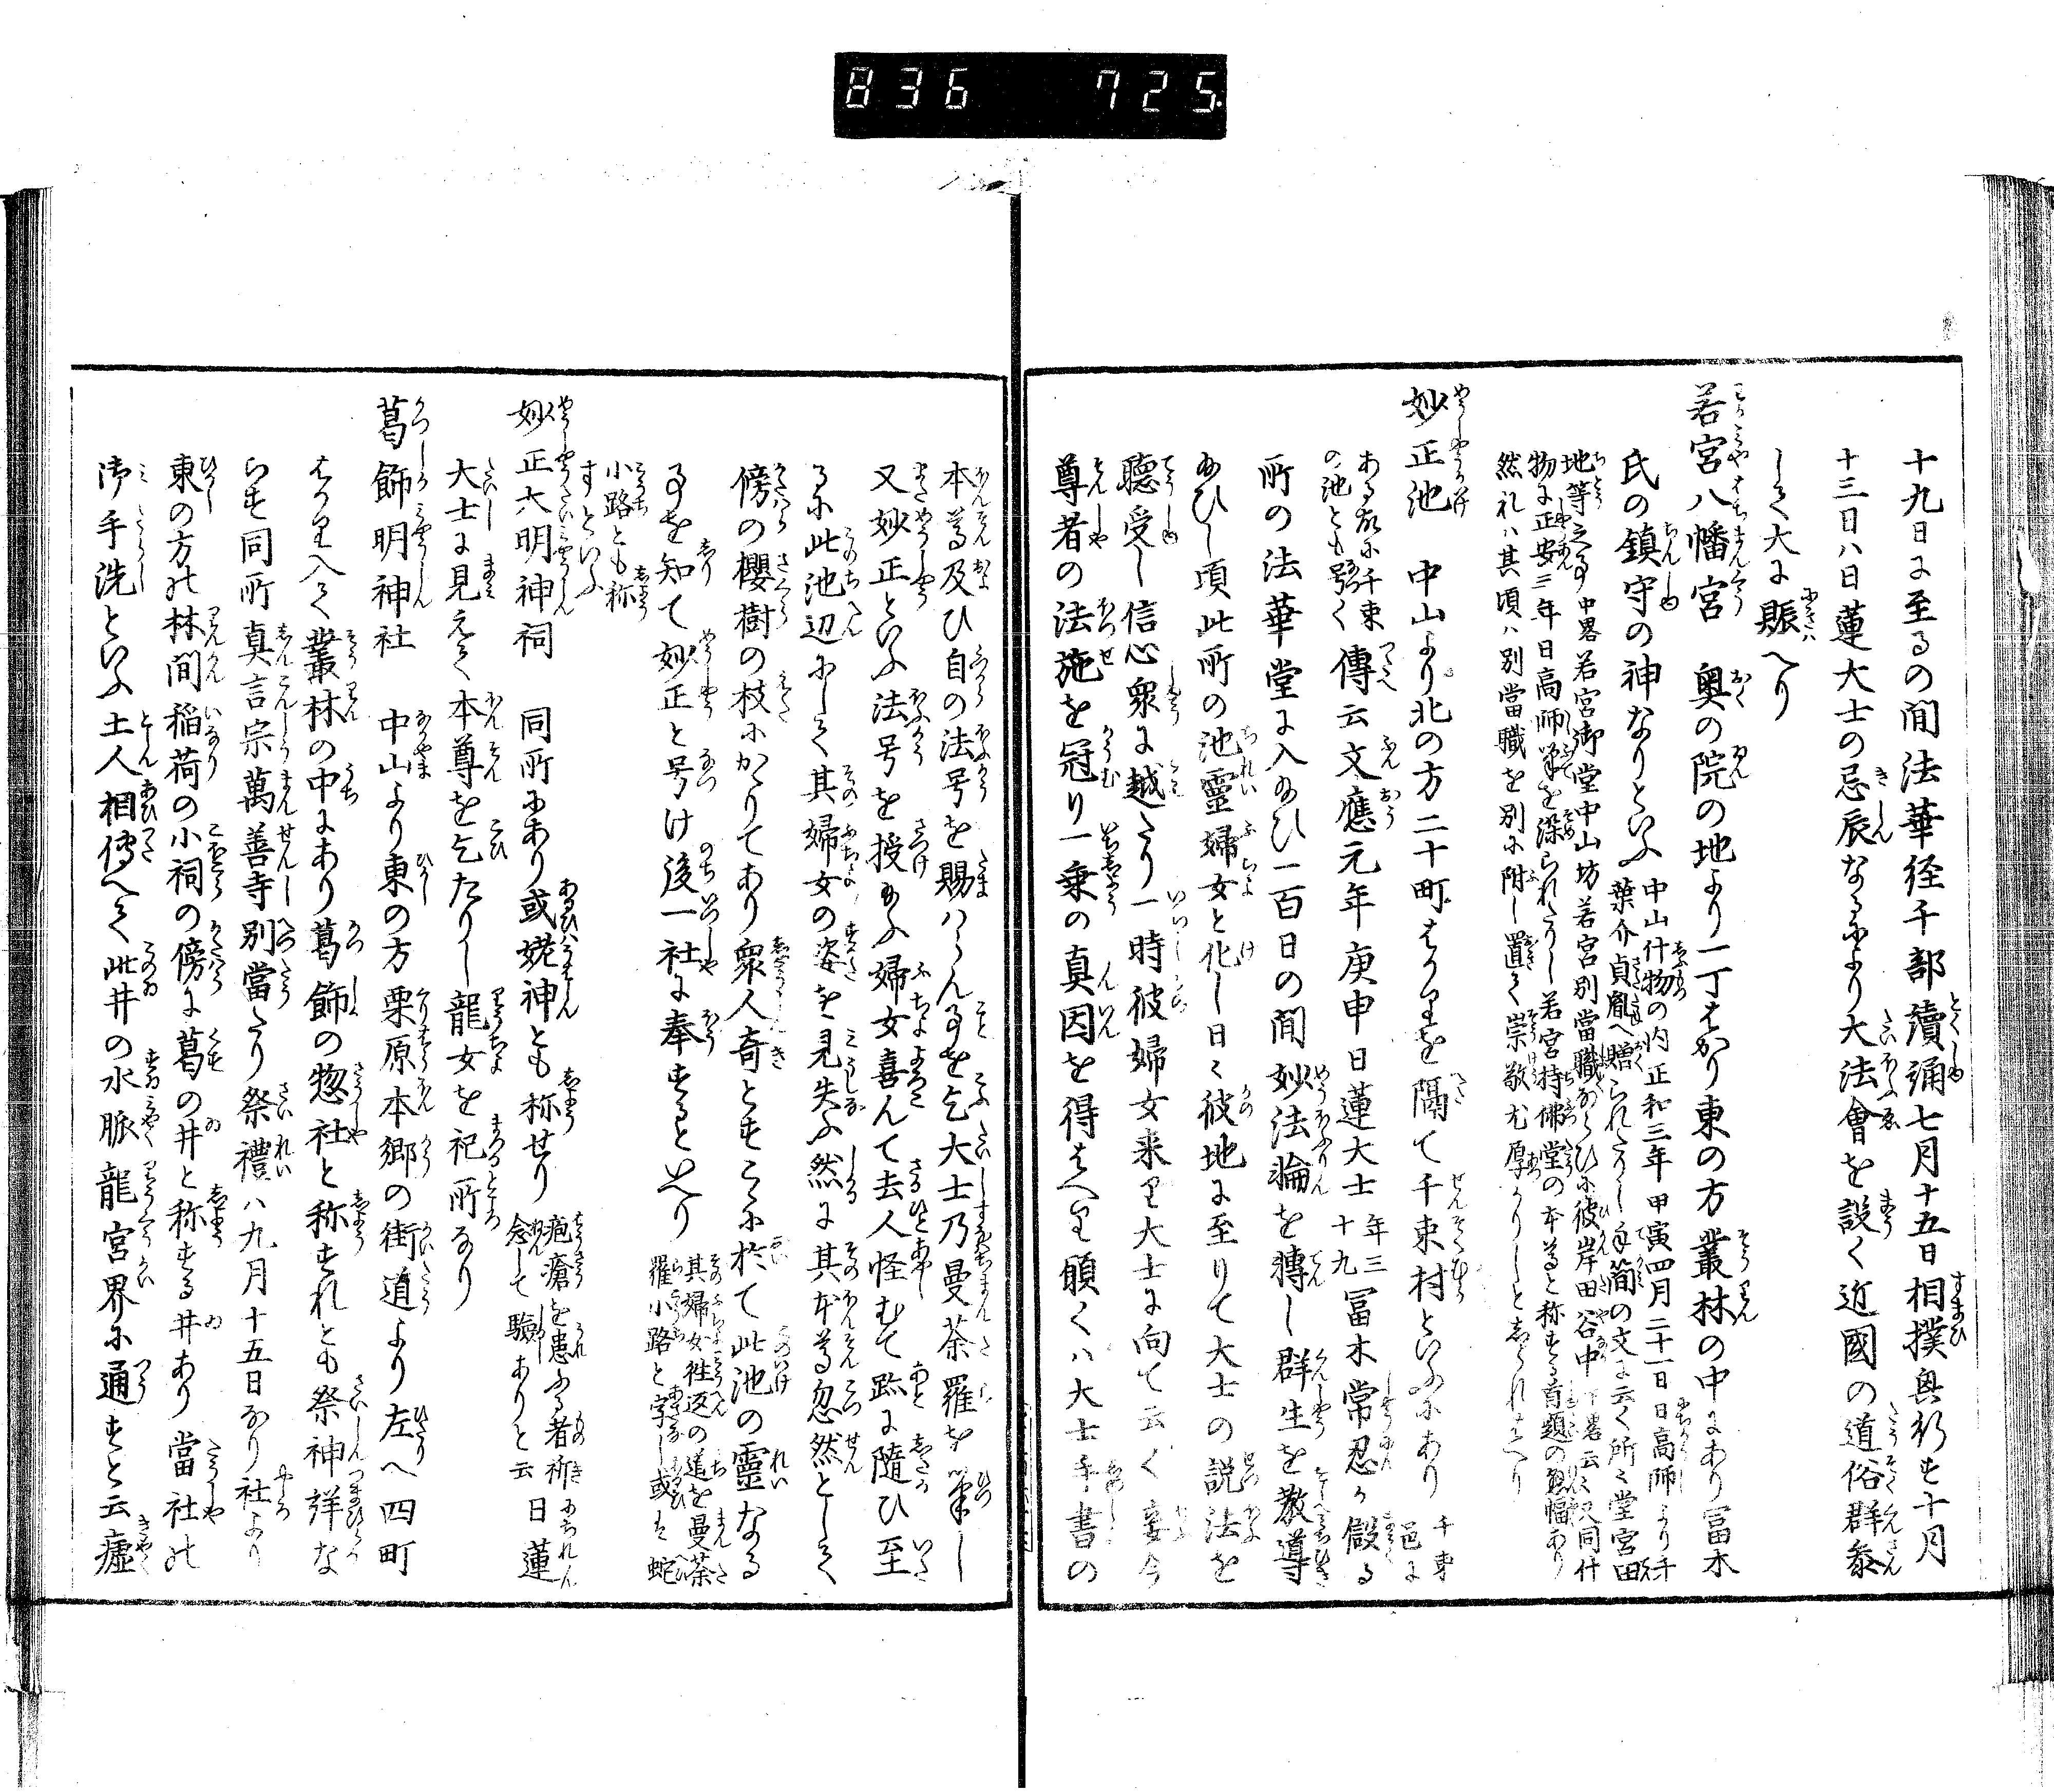 836 725
十九日に至るの間法華経千部讀誦七月十五日相撲興行す十月
十三日ハ日蓮大士の忌辰なるにより大法會を設く近國の道俗群参
して大に賑へり
若宮八幡宮 奥の院の地より一丁はかり東の方叢林の中にあり冨木
氏の鎮守の神なりといふ
中山什物の内正和三年甲寅四月二十一日日高師より千
葉介貞胤へ贈られたりし手簡の文に云く所々堂宮田
地等之事中畧若宮御堂中山坊若宮別當職ならひに彼岸田谷中下畧云々又同什
物に正安三年日高師筆を染られたりし若宮持佛堂の本尊と称する首題の懸幅あり
然れハ其頃ハ別當職を別に附し置て崇敬尤厚かりしとしられたり
妙正池 中山より北の方二十町はかりを隔て千束村といふにあり
千束
邑に
ある故に千束
の池とも号く
傳云文應元年庚申日蓮大士
年三
十九
冨木常忍か殿る
所の法華堂に入給ひ一百日の間妙法輪を轉し群生を教導
給ひし頃此所の池靈婦女と化し日々彼地に至りて大士の説法を
聴受し信心衆に越たり一時彼婦女来り大士に向て云く妾今
尊者の法施を冠り一乗の真因を得たり願くハ大士手書の
本尊及ひ自の法号を賜ハらん事を乞大士乃曼荼羅を筆し
又妙正といふ法号を授給ふ婦女喜んて去人怪むて跡に随ひ至
るに此池辺にして其婦女の姿を見失ふ然に其本尊忽然として
傍の櫻樹の枝にかゝりてあり衆人奇とすこゝに於て此池の靈なる
事を知て妙正と号け後一社に奉するといへり
其婦女徃返の道を曼荼
羅小路と字し或は蛇
小路とも称
すといふ
妙正大明神祠 同所にあり或姥神とも称せり
疱瘡を患ふる者祈
念して驗ありと云
日蓮
大士に見えて本尊を乞たりし龍女を祀所なり
葛飾明神社 中山より東の方栗原本郷の街道より左へ四町
はかり入て叢林の中にあり葛飾の惣社と称すれとも祭神詳な
らす同所真言宗萬善寺別當たり祭禮ハ九月十五日なり社より
東の方の林間稲荷の小祠の傍に葛の井と称する井あり當社の
御手洗といふ土人相傳へて此井の水脈龍宮界に通すと云瘧